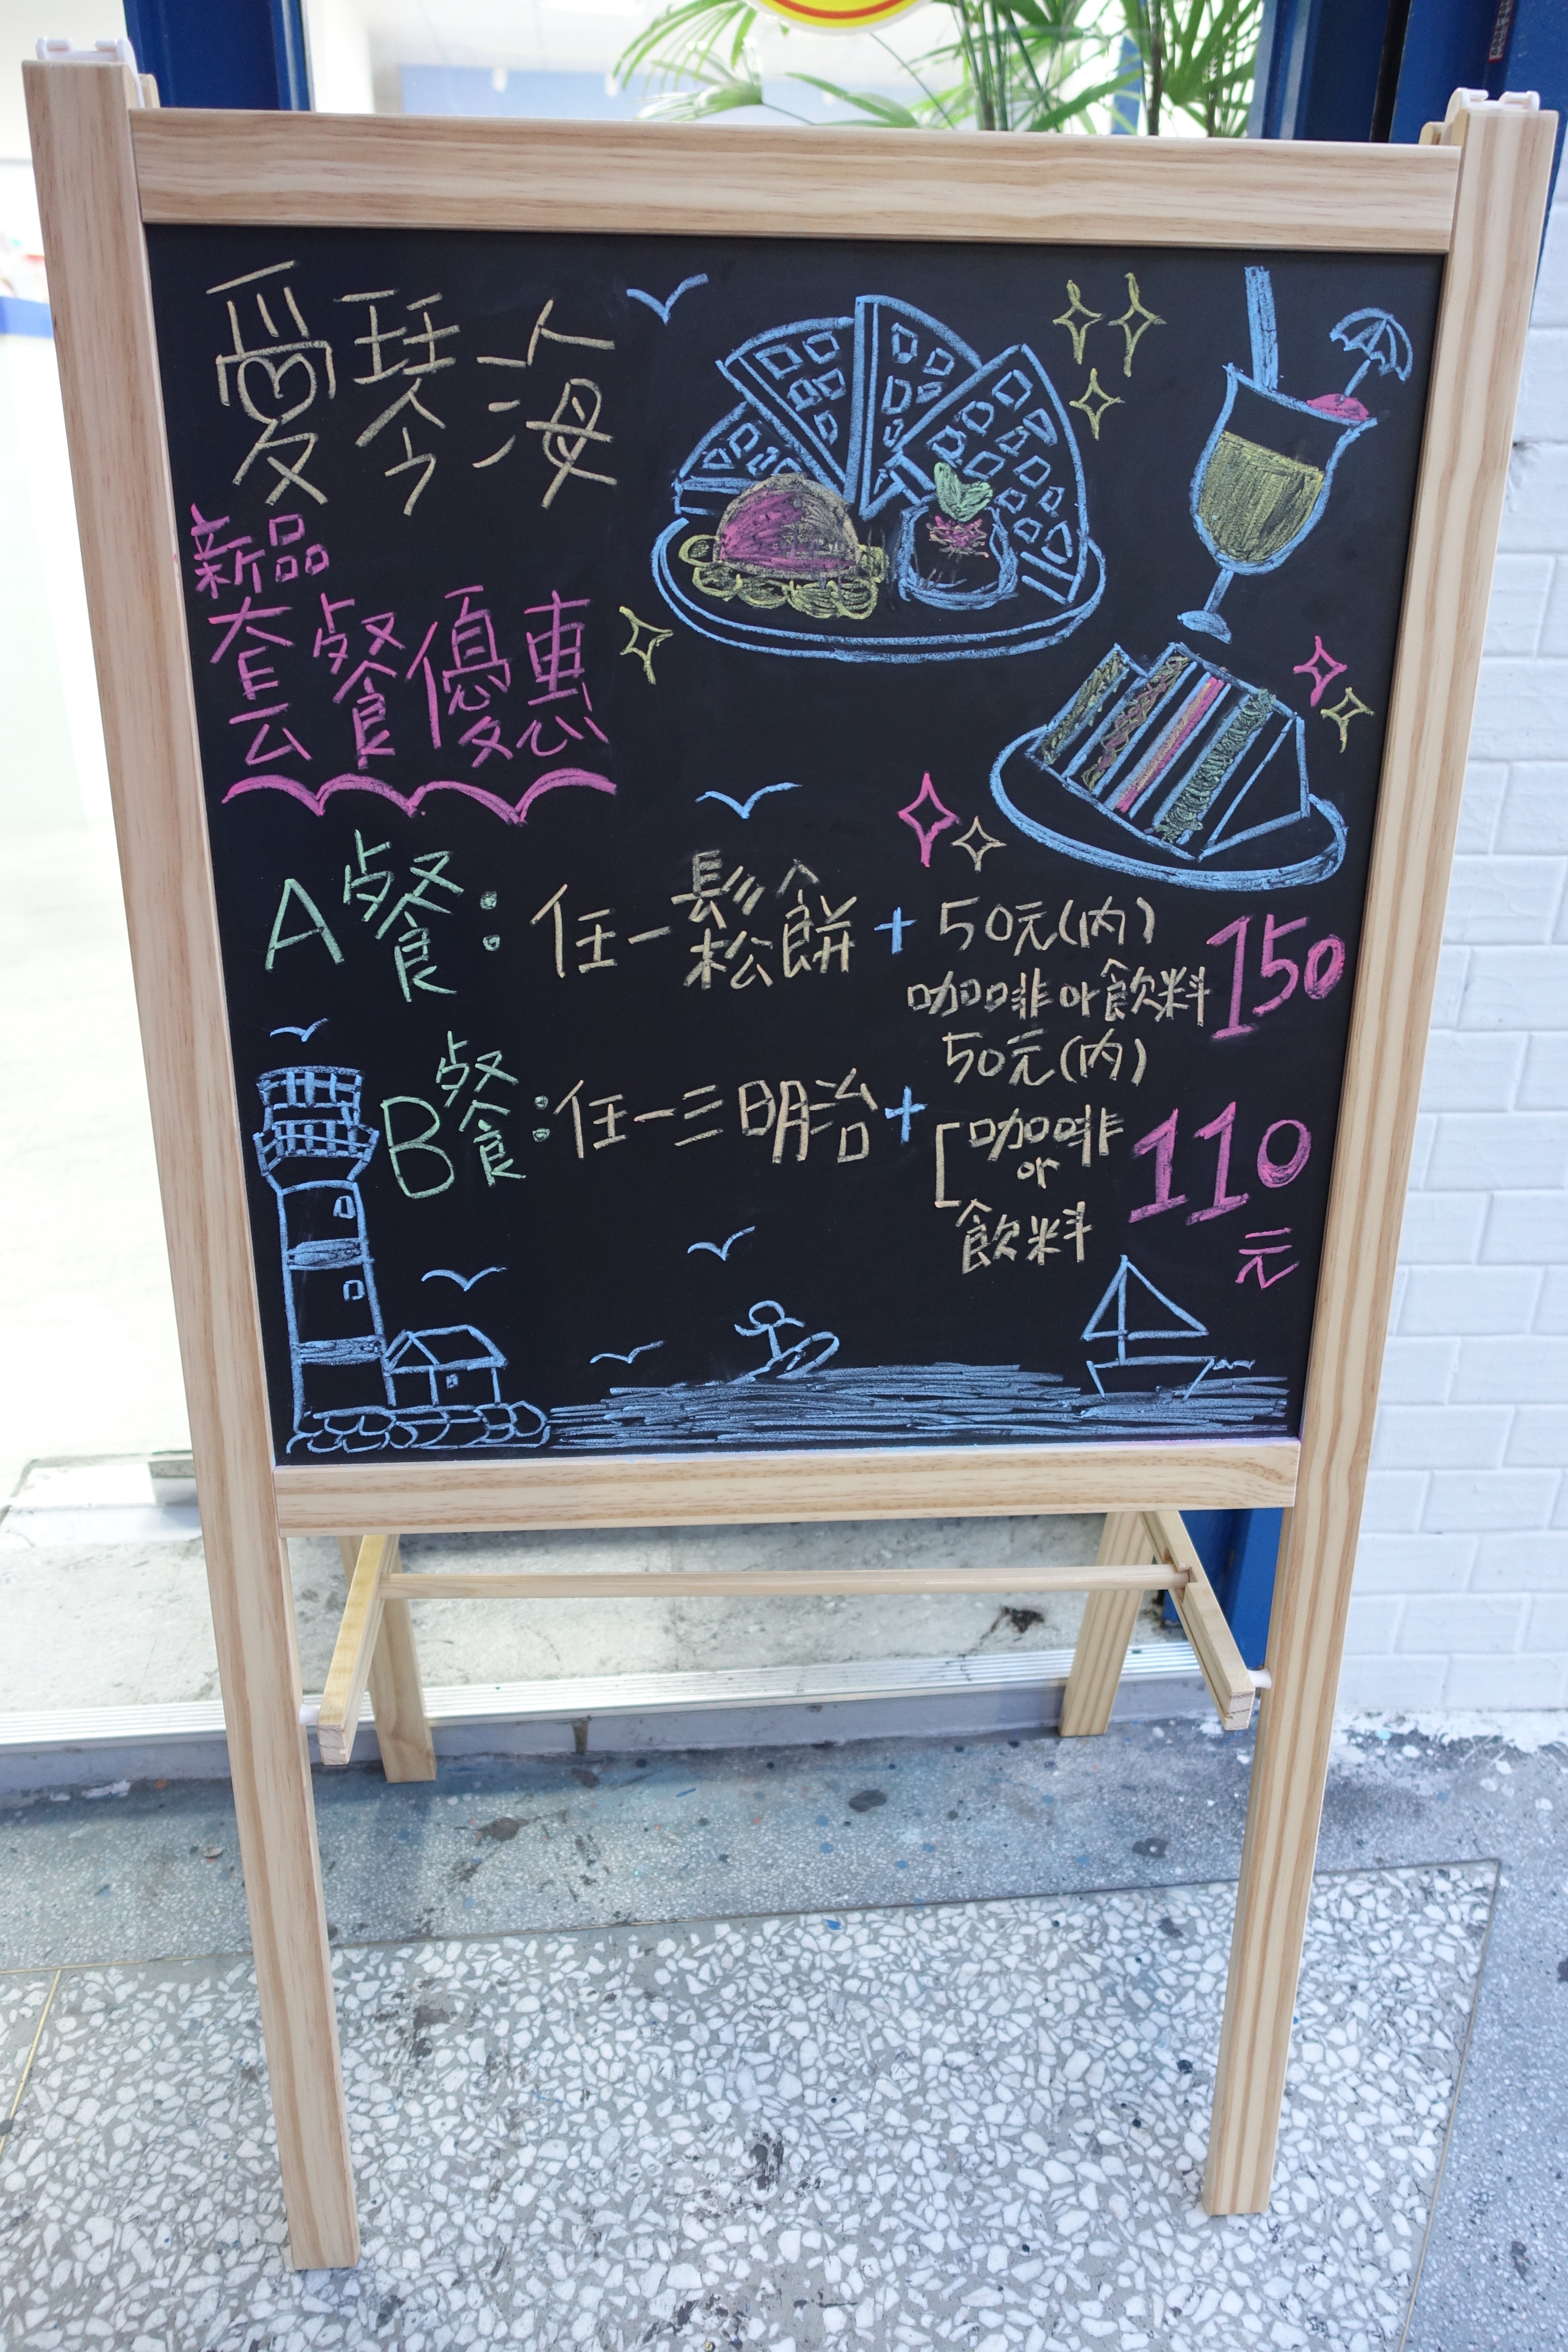 愛琴海
新品
套餐優惠
A餐：任一鬆餅+50元(內)咖啡or飲料 150
B餐：任一三明治+50元(內)[咖啡or飲料 110元